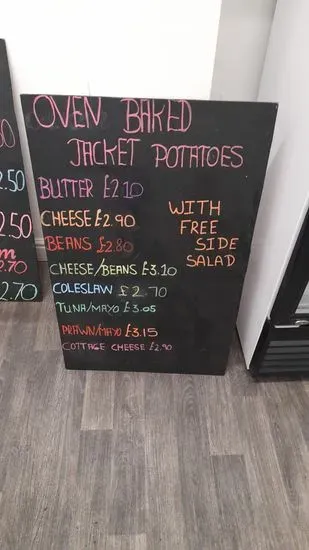 OVEN BAKED
JACKET POTATOES
BUTTER £2.10
CHEESE £2.90
BEANS £2.80
CHEESE/BEANS £3.10
COLESLAW £2.70
TUNA/MAYO £3.05
PRAWN/MAYO £3.15
COTTAGE CHEESE £2.90
WITH
FREE
SIDE
SALAD
2.50
2.50
2.70
2.70